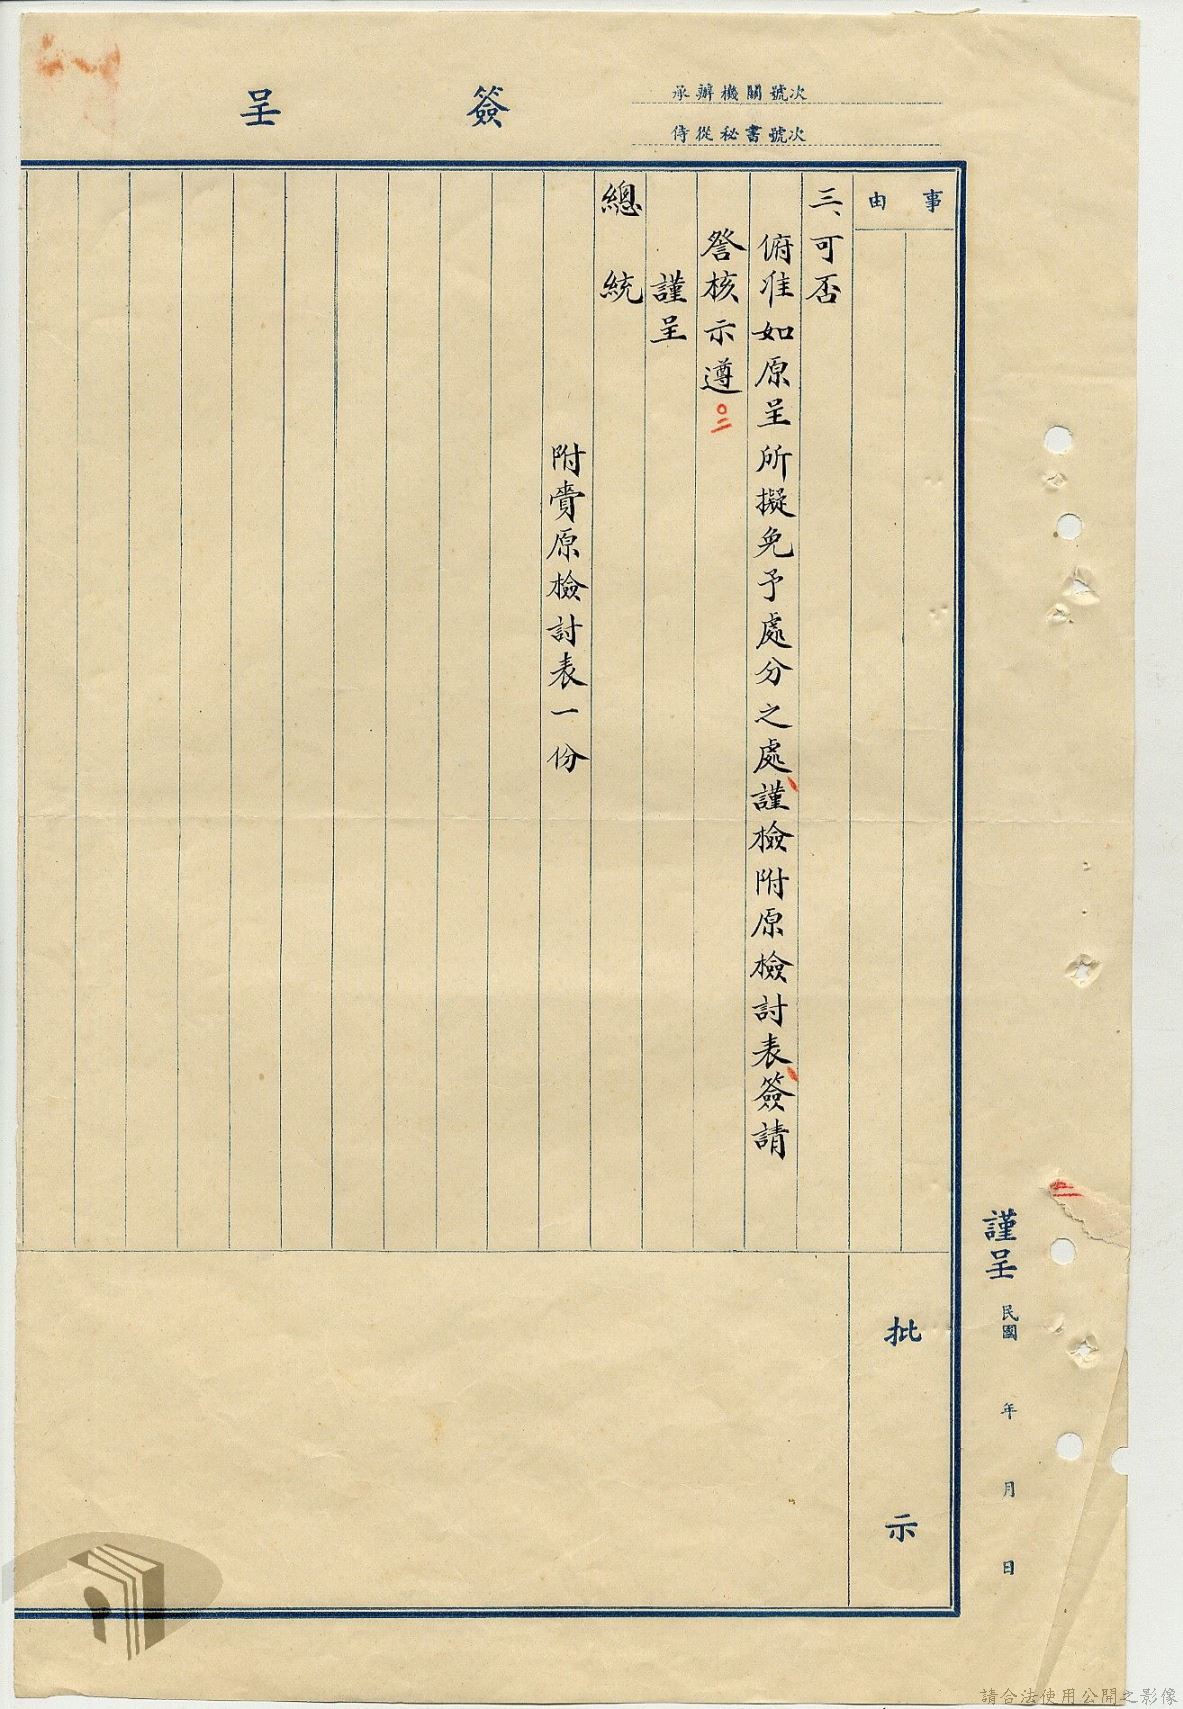 簽呈
承辦機關號次
侍從秘書號次
事由
三、可否
俯准如原呈所擬免予處分之處謹檢附原檢討表簽請
詧核示遵
〇二
謹呈
總統
附賫原檢討表一份
批示
二
謹呈 民國 年 月 日
請合法使用公開之影像